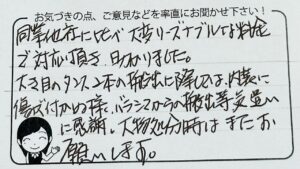 お気づきの点、ご意見などを率直にお聞かせ下さい!
同業他社に比べ大変リーズナブルな料金
で対応頂き、助かりました。
大き目のタンス2本の搬出に際しては、内装に
傷を付けぬ様、バランスからの搬出等気遣い
に感謝。大物処分時はまたお
願いします。